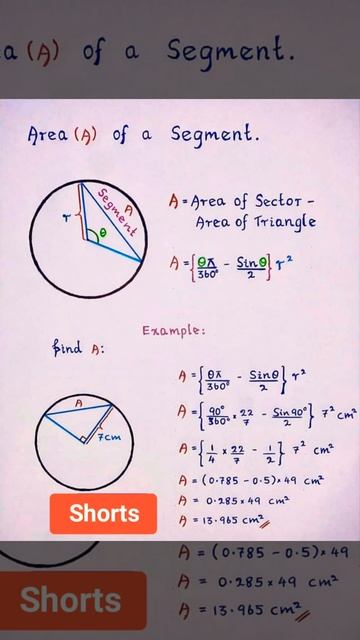 a (A) of a Segment.
Area (A) of a Segment.
A
Segment
r
θ
A = Area of Sector -
Area of Triangle
A = {θπ/360° - Sinθ/2} r²
Example:
find A:
A
7cm
A = {θπ/360° - Sinθ/2} r²
A = {90°/360° × 22/7 - Sin90°/2} 7² cm²
A = {1/4 × 22/7 - 1/2} 7² cm²
A = (0.785 - 0.5) × 49 cm²
A = 0.285 × 49 cm²
A = 13.965 cm²
Shorts
A = (0.785 - 0.5) × 49
A = 0.285 × 49 cm²
A = 13.965 cm²
Shorts